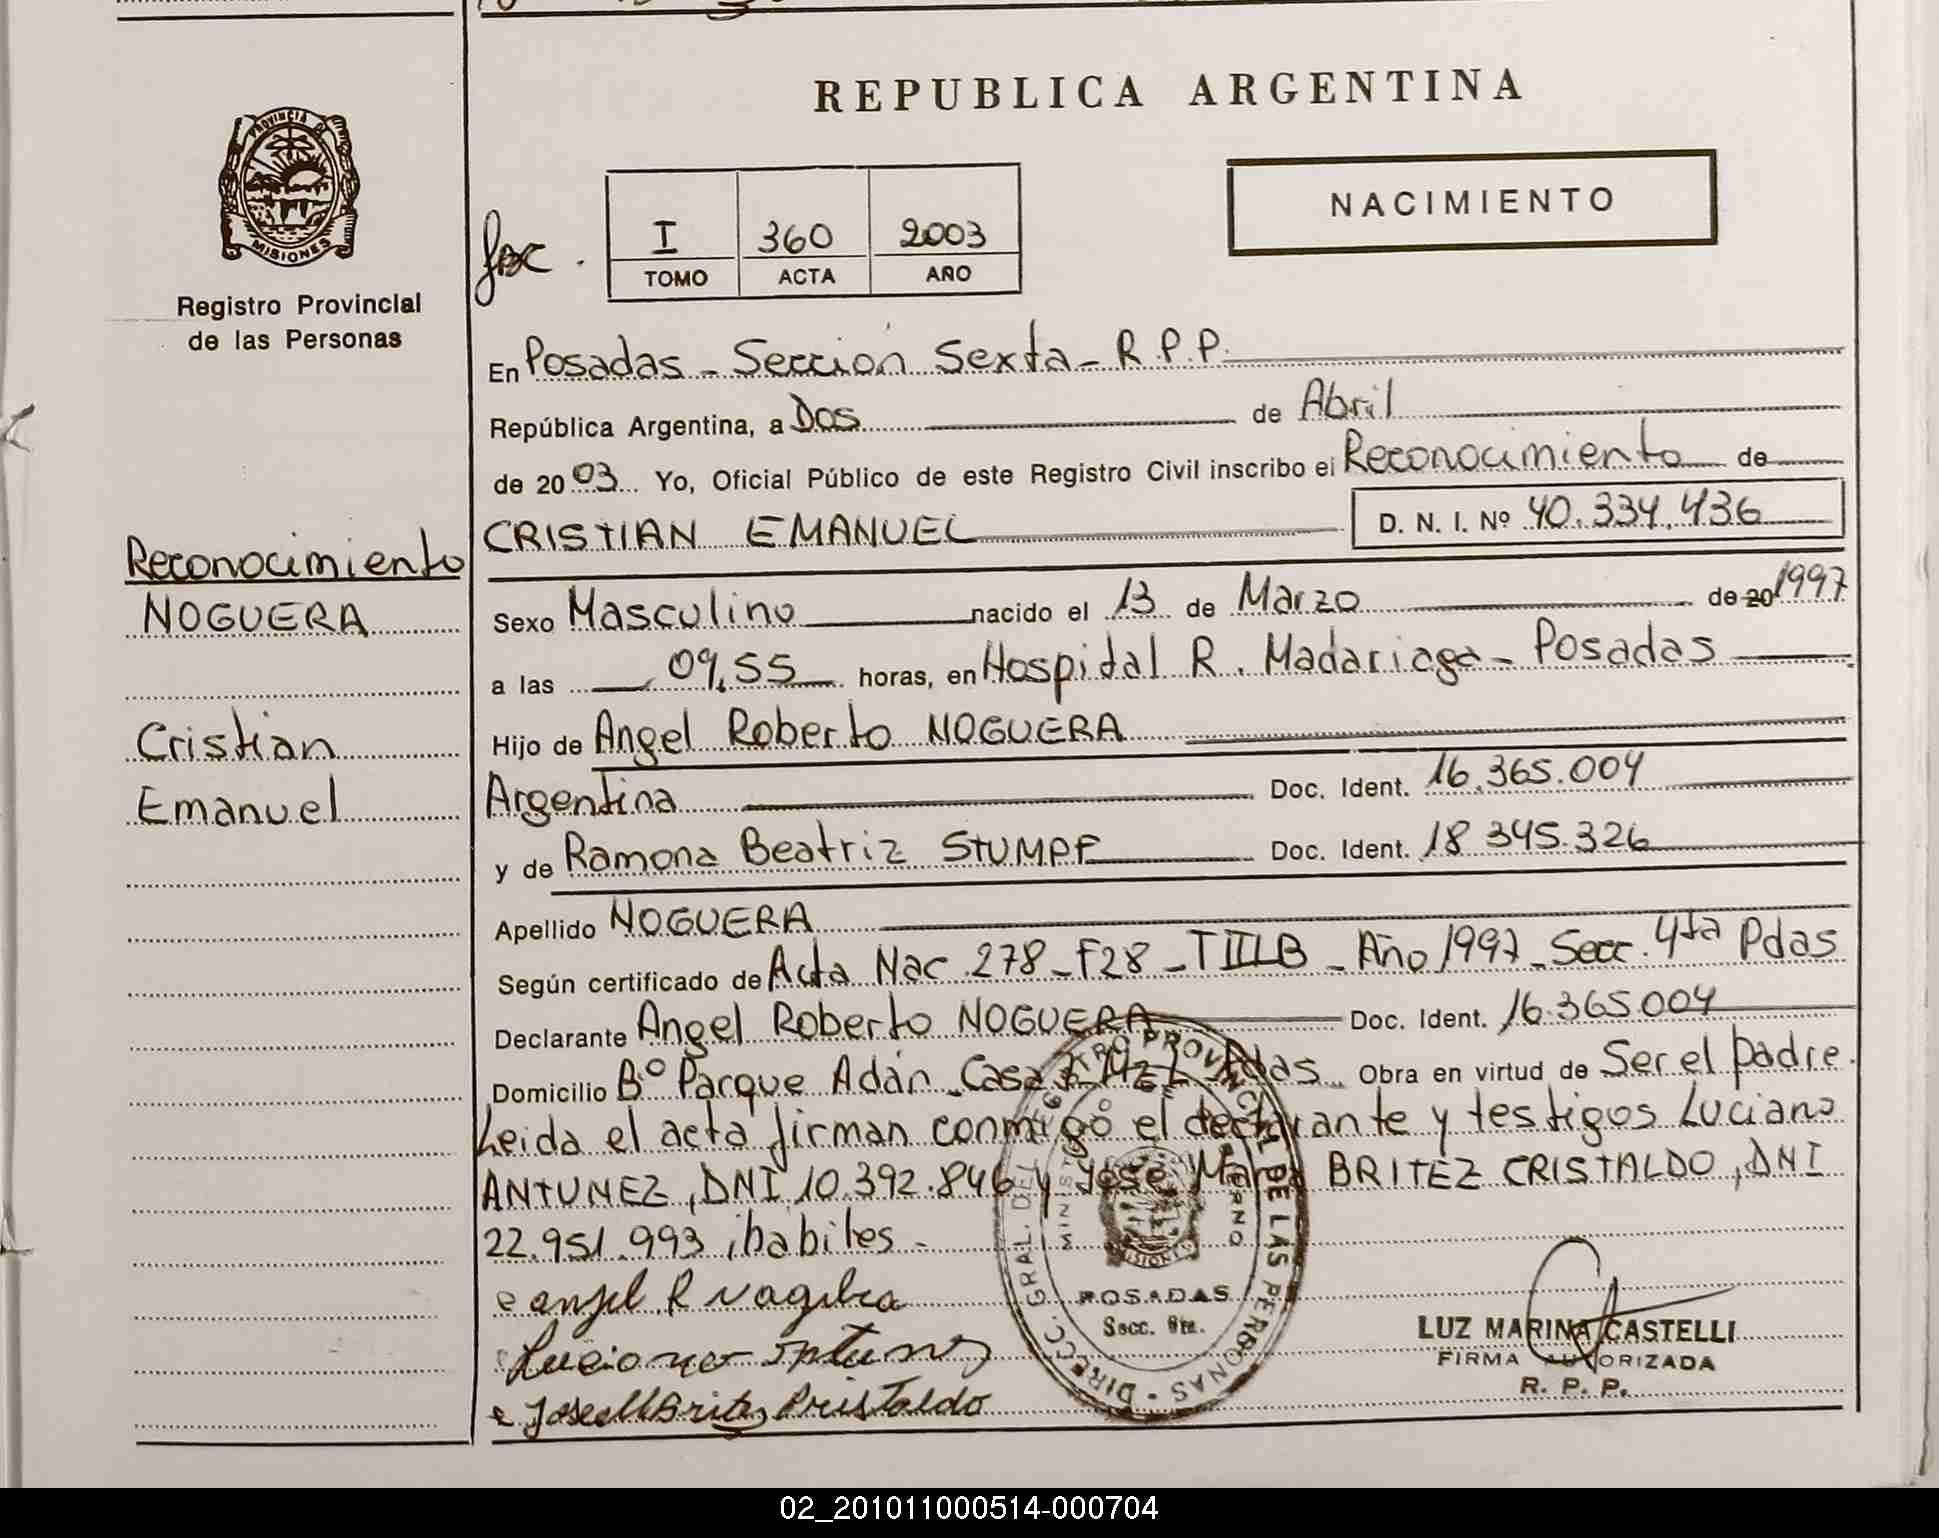 REPUBLICA ARGENTINA
PROVINCIA DE
MISIONES
Registro Provincial
de las Personas
I 360 2003
TOMO ACTA AÑO
NACIMIENTO
En Posadas - Sección Sexta - R.P.P.
República Argentina, a Dos de Abril
de 2003 Yo, Oficial Público de este Registro Civil inscribo el Reconocimiento de
CRISTIAN EMANUEL D. N. I. Nº 40.334.436
Reconocimiento
NOGUERA
Cristian
Emanuel
Sexo Masculino nacido el 13 de Marzo de 20 1997
a las 09,55 horas, en Hospidal R. Madariaga - Posadas
Hijo de Angel Roberto NOGUERA
Argentina Doc. Ident. 16.365.004
y de Ramona Beatriz STUMPF Doc. Ident. 18 345.326
Apellido NOGUERA
Según certificado de Acta Nac. 278 - F28 - TIILB - Año 1997 - Secc. 4ta Pdas
Declarante Angel Roberto NOGUERA Doc. Ident. 16.365.004
Domicilio Bº Parque Adán Casa Pdas Obra en virtud de Ser el padre.
Leida el acta firman conmigo el declarante y testigos Luciano
ANTUNEZ, DNI 10.392.846 y José María BRITEZ CRISTALDO, DNI
22.951.993, habiles -
DIRECC. GRAL. DEL REGISTRO PROVINCIAL DE LAS PERSONAS
POSADAS
Secc. 6ta.
LUZ MARINA CASTELLI
FIRMA AUTORIZADA
R. P. P.
02_201011000514-000704